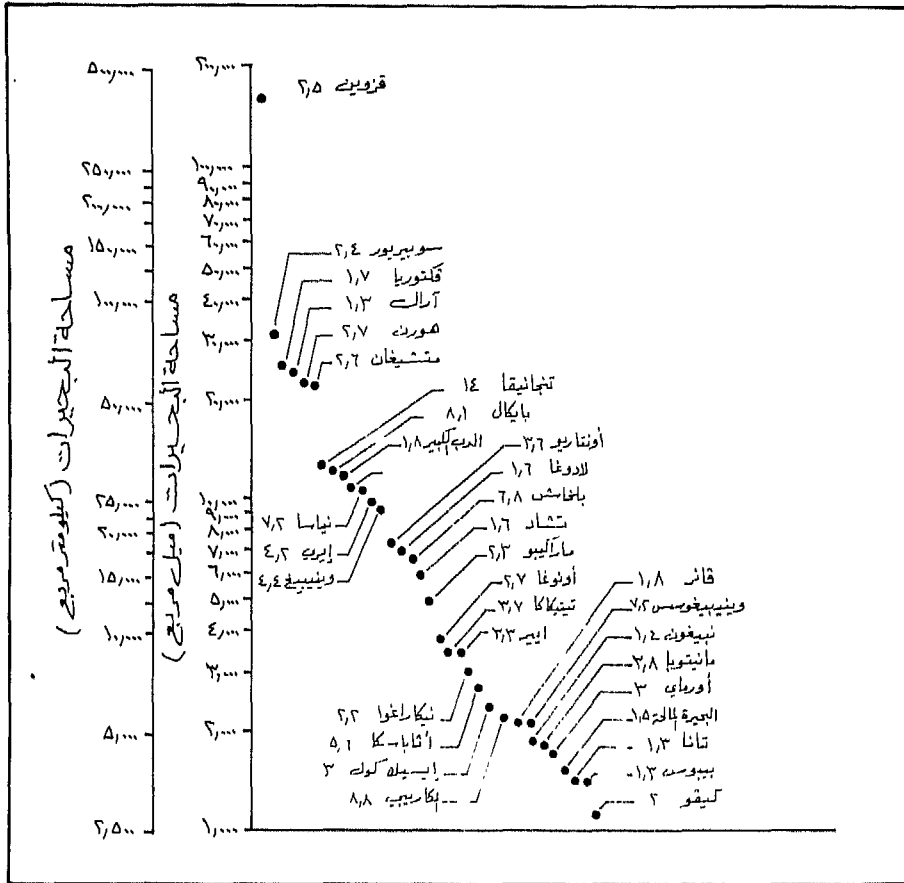 مساحة البحيرات (كيلومتر مربع)
٥٠٠,٠٠٠
٢٥٠,٠٠٠
٢٠٠,٠٠٠
١٥٠,٠٠٠
١٠٠,٠٠٠
٥٠,٠٠٠
٢٥,٠٠٠
٢٠,٠٠٠
١٥,٠٠٠
١٠,٠٠٠
٥,٠٠٠
٢,٥٠٠
مساحة البحيرات (ميل مربع)
٢٠٠,٠٠٠
١٠٠,٠٠٠
٩٠,٠٠٠
٨٠,٠٠٠
٧٠,٠٠٠
٦٠,٠٠٠
٥٠,٠٠٠
٤٠,٠٠٠
٣٠,٠٠٠
٢٠,٠٠٠
١٠,٠٠٠
٩,٠٠٠
٨,٠٠٠
٧,٠٠٠
٦,٠٠٠
٥,٠٠٠
٤,٠٠٠
٣,٠٠٠
٢,٠٠٠
١,٠٠٠
قزوين ٢,٥
سوبيريور ٢,٤
ڤكتوريا ١,٧
آرال ١,٣
هورن ٢,٧
متشيغان ٢,٦
تنجانيقا ١٤
بايكال ٨,١
الدب الكبير ١,٨
نياسا ٧,٢
إيري ٤,٢
وينيبيغ ٤,٤
أونتاريو ٣,٦
لادوغا ١,٦
بلخاش ٦,٨
تشاد ١,٦
ماراكيبو ٢,٣
أونوغا ٢,٧
تيتيكاكا ٣,٧
ايير ٣,٣
نيكاراغوا ٢,٢
أثاباسكا ٥,٦
إيسيك كول ٣
٨,٨
ڤانر ١,٨
وينيبيغوسس ٧,٢
نبيغون ١,٤
مانيتوبا ٣,٨
أورماي ٣
البحيرة المالحة ١,٥
تانا ١,٣
بيبوس ١,٣
كيڤو ٢